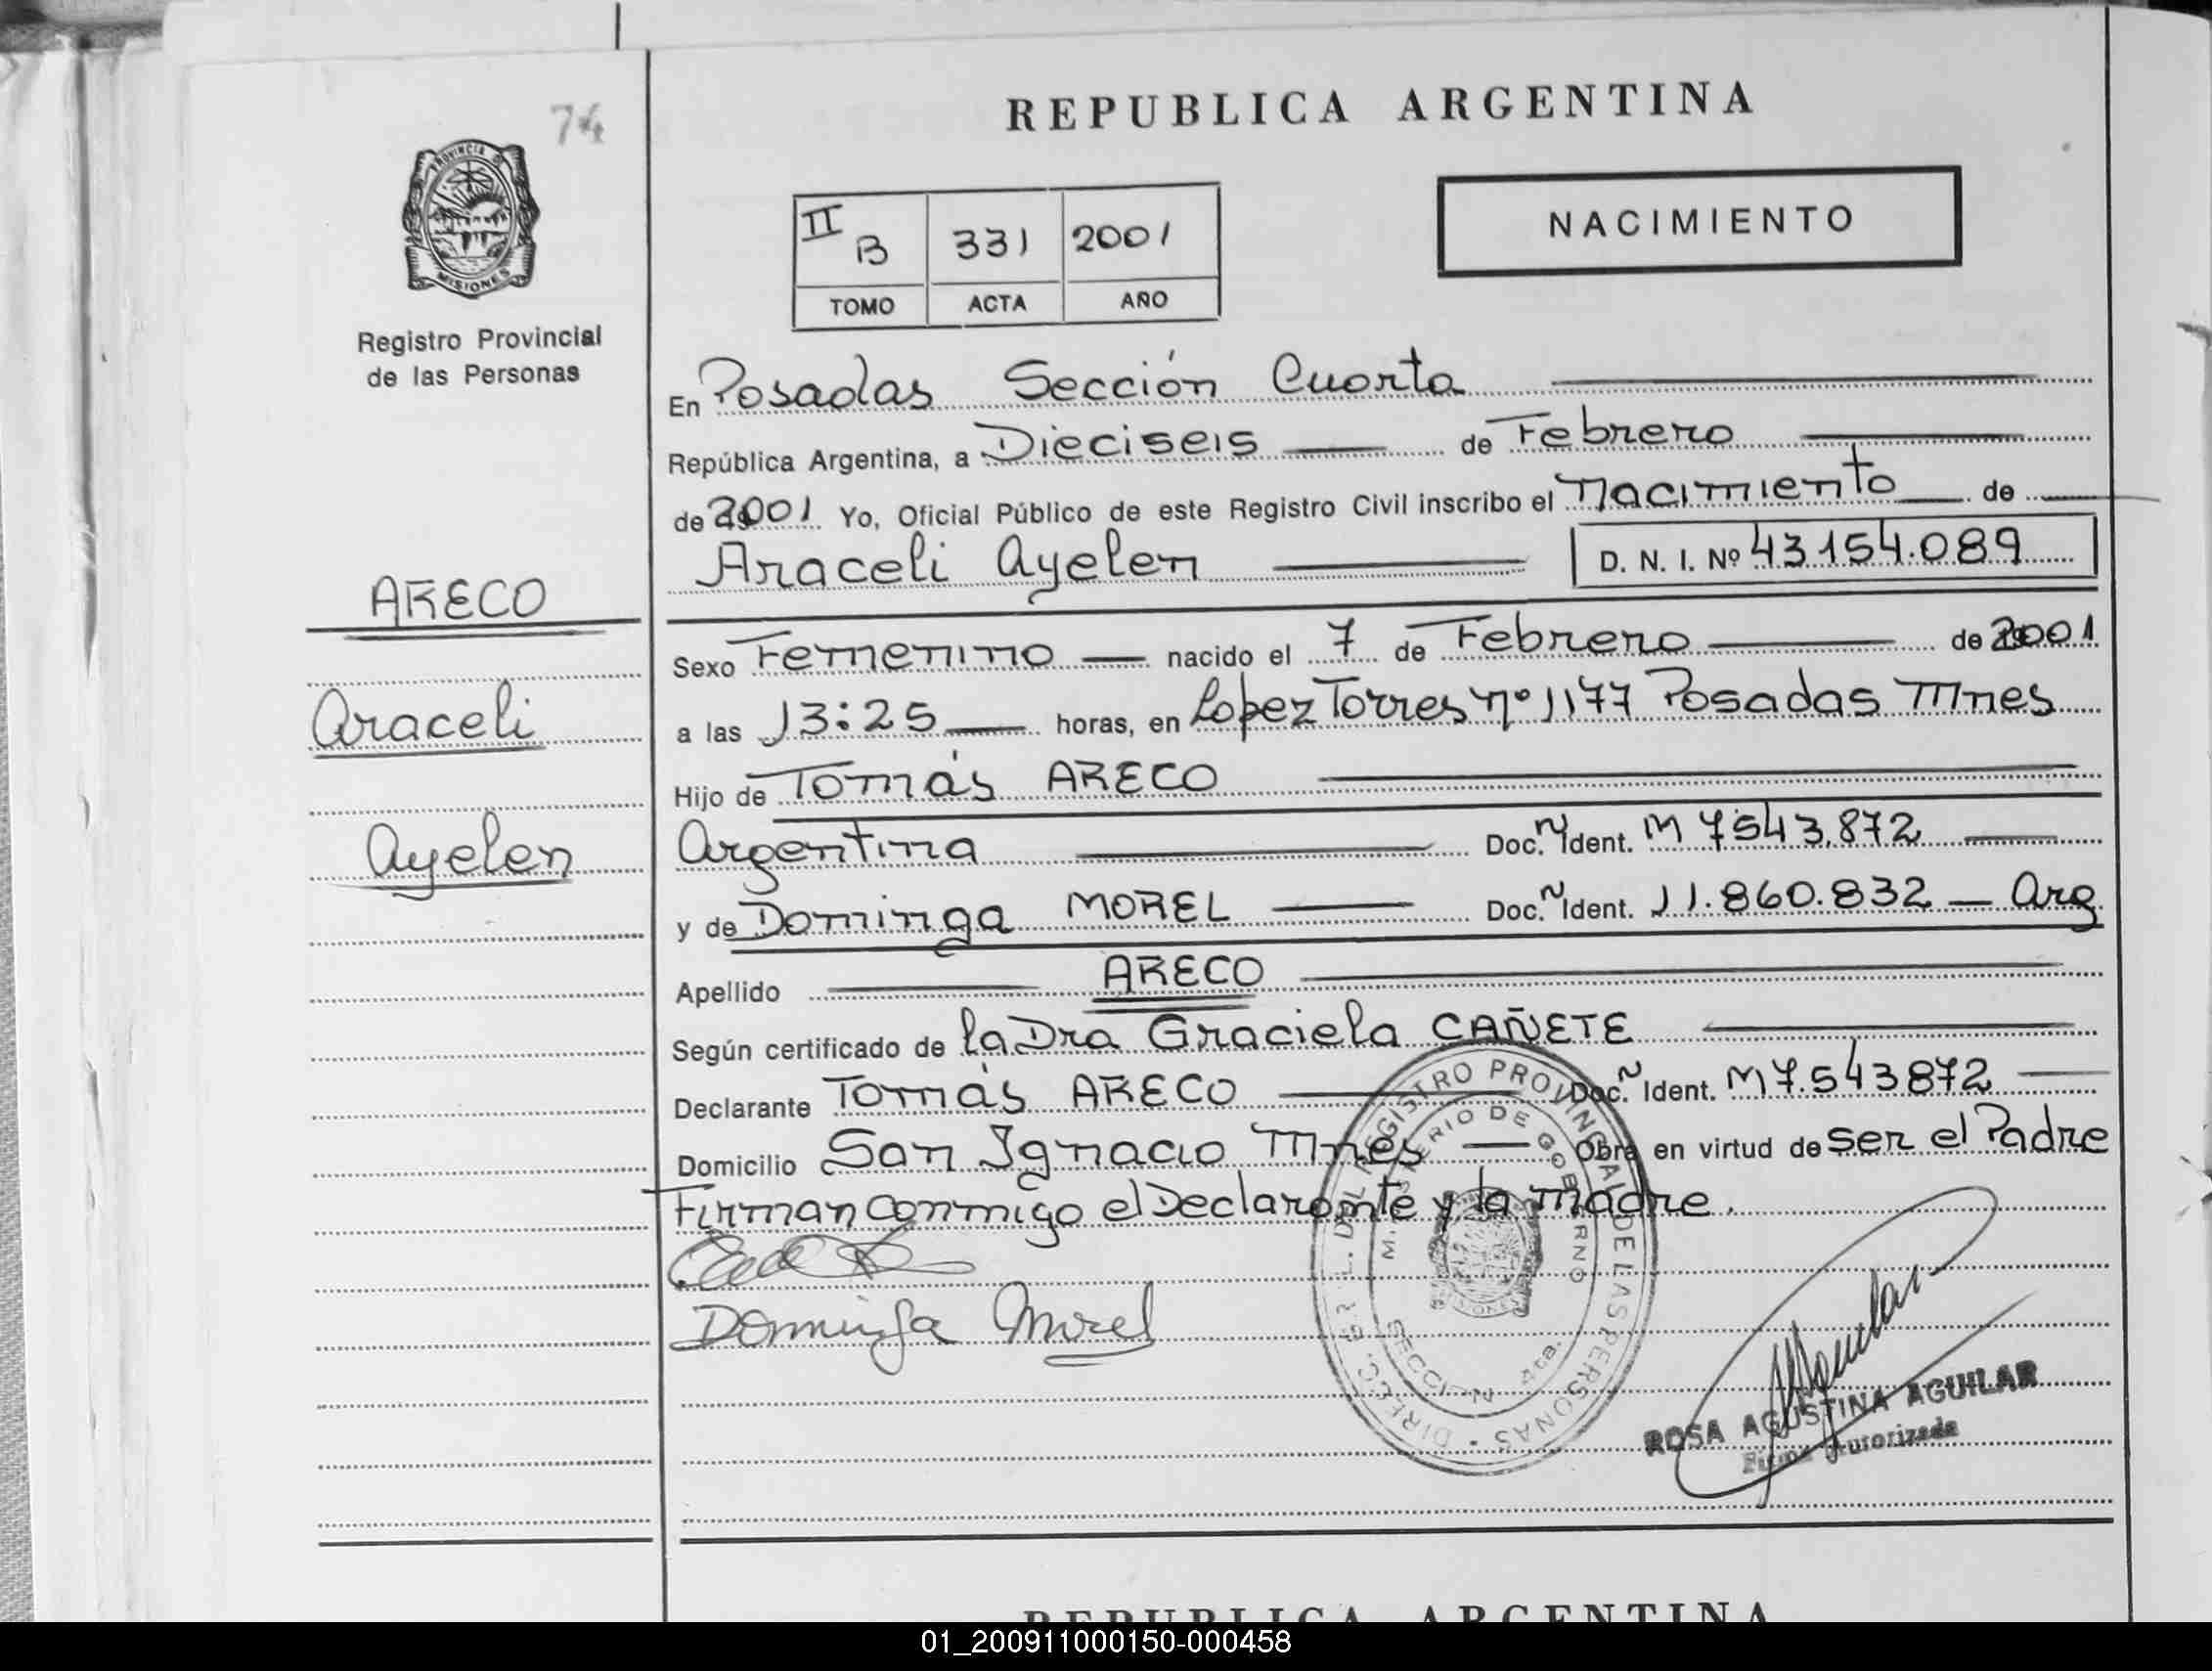 74
REPUBLICA ARGENTINA
PROVINCIA DE MISIONES
Registro Provincial
de las Personas
II B 331 2001
TOMO ACTA AÑO
NACIMIENTO
En Posadas Sección Cuarta
República Argentina, a Dieciseis de Febrero
de 2001 Yo, Oficial Público de este Registro Civil inscribo el Nacimiento de
Araceli Ayelen D. N. I. Nº 43.154.089
ARECO
Araceli
Ayelen
Sexo Femenino nacido el 7 de Febrero de 2001
a las 13:25 horas, en Lopez Torres nº 1177 Posadas Mnes
Hijo de Tomás ARECO
Argentina Doc. Ident. M 7543.872
y de Dominga MOREL Doc. Ident. 11.860.832 — Arg
Apellido ARECO
Según certificado de la Dra Graciela CAÑETE
Declarante Tomás ARECO Doc. Ident. M 7.543872
Domicilio San Ignacio Mnes — Obra en virtud de ser el Padre
Firman conmigo el Declarante y la madre.
Dominga Morel
DIREC. GRAL. DEL REGISTRO PROVINCIAL DE LAS PERSONAS
MINISTERIO DE GOBIERNO
SECCION 4ta.
ROSA AGUSTINA AGUILAR
Firma Autorizada
REPUBLICA ARGENTINA
01_200911000150-000458